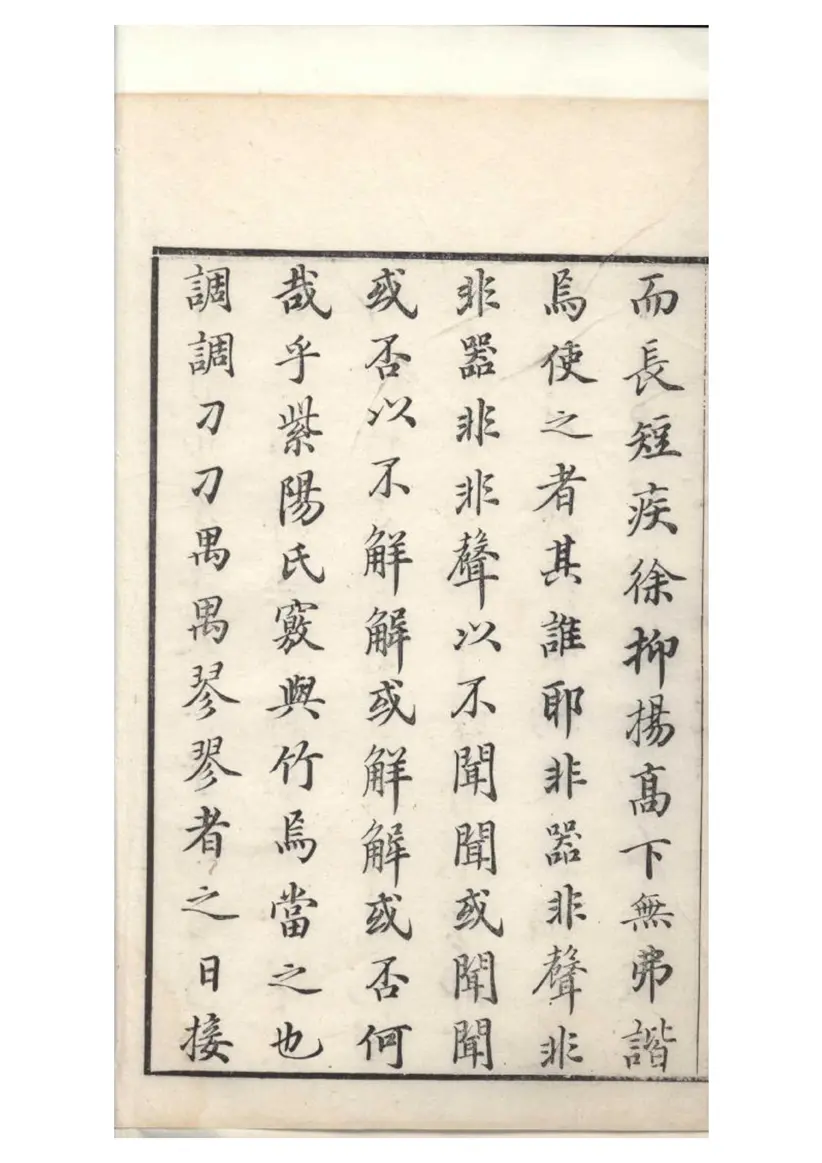 而長短疾徐抑揚高下無弗諧
焉使之者其誰耶非器非聲非
非器非非聲以不聞聞或聞聞
或否以不解解或解解或否何
哉乎紫陽氏竅與竹焉當之也
調調刀刀喁喁翏翏者之日接